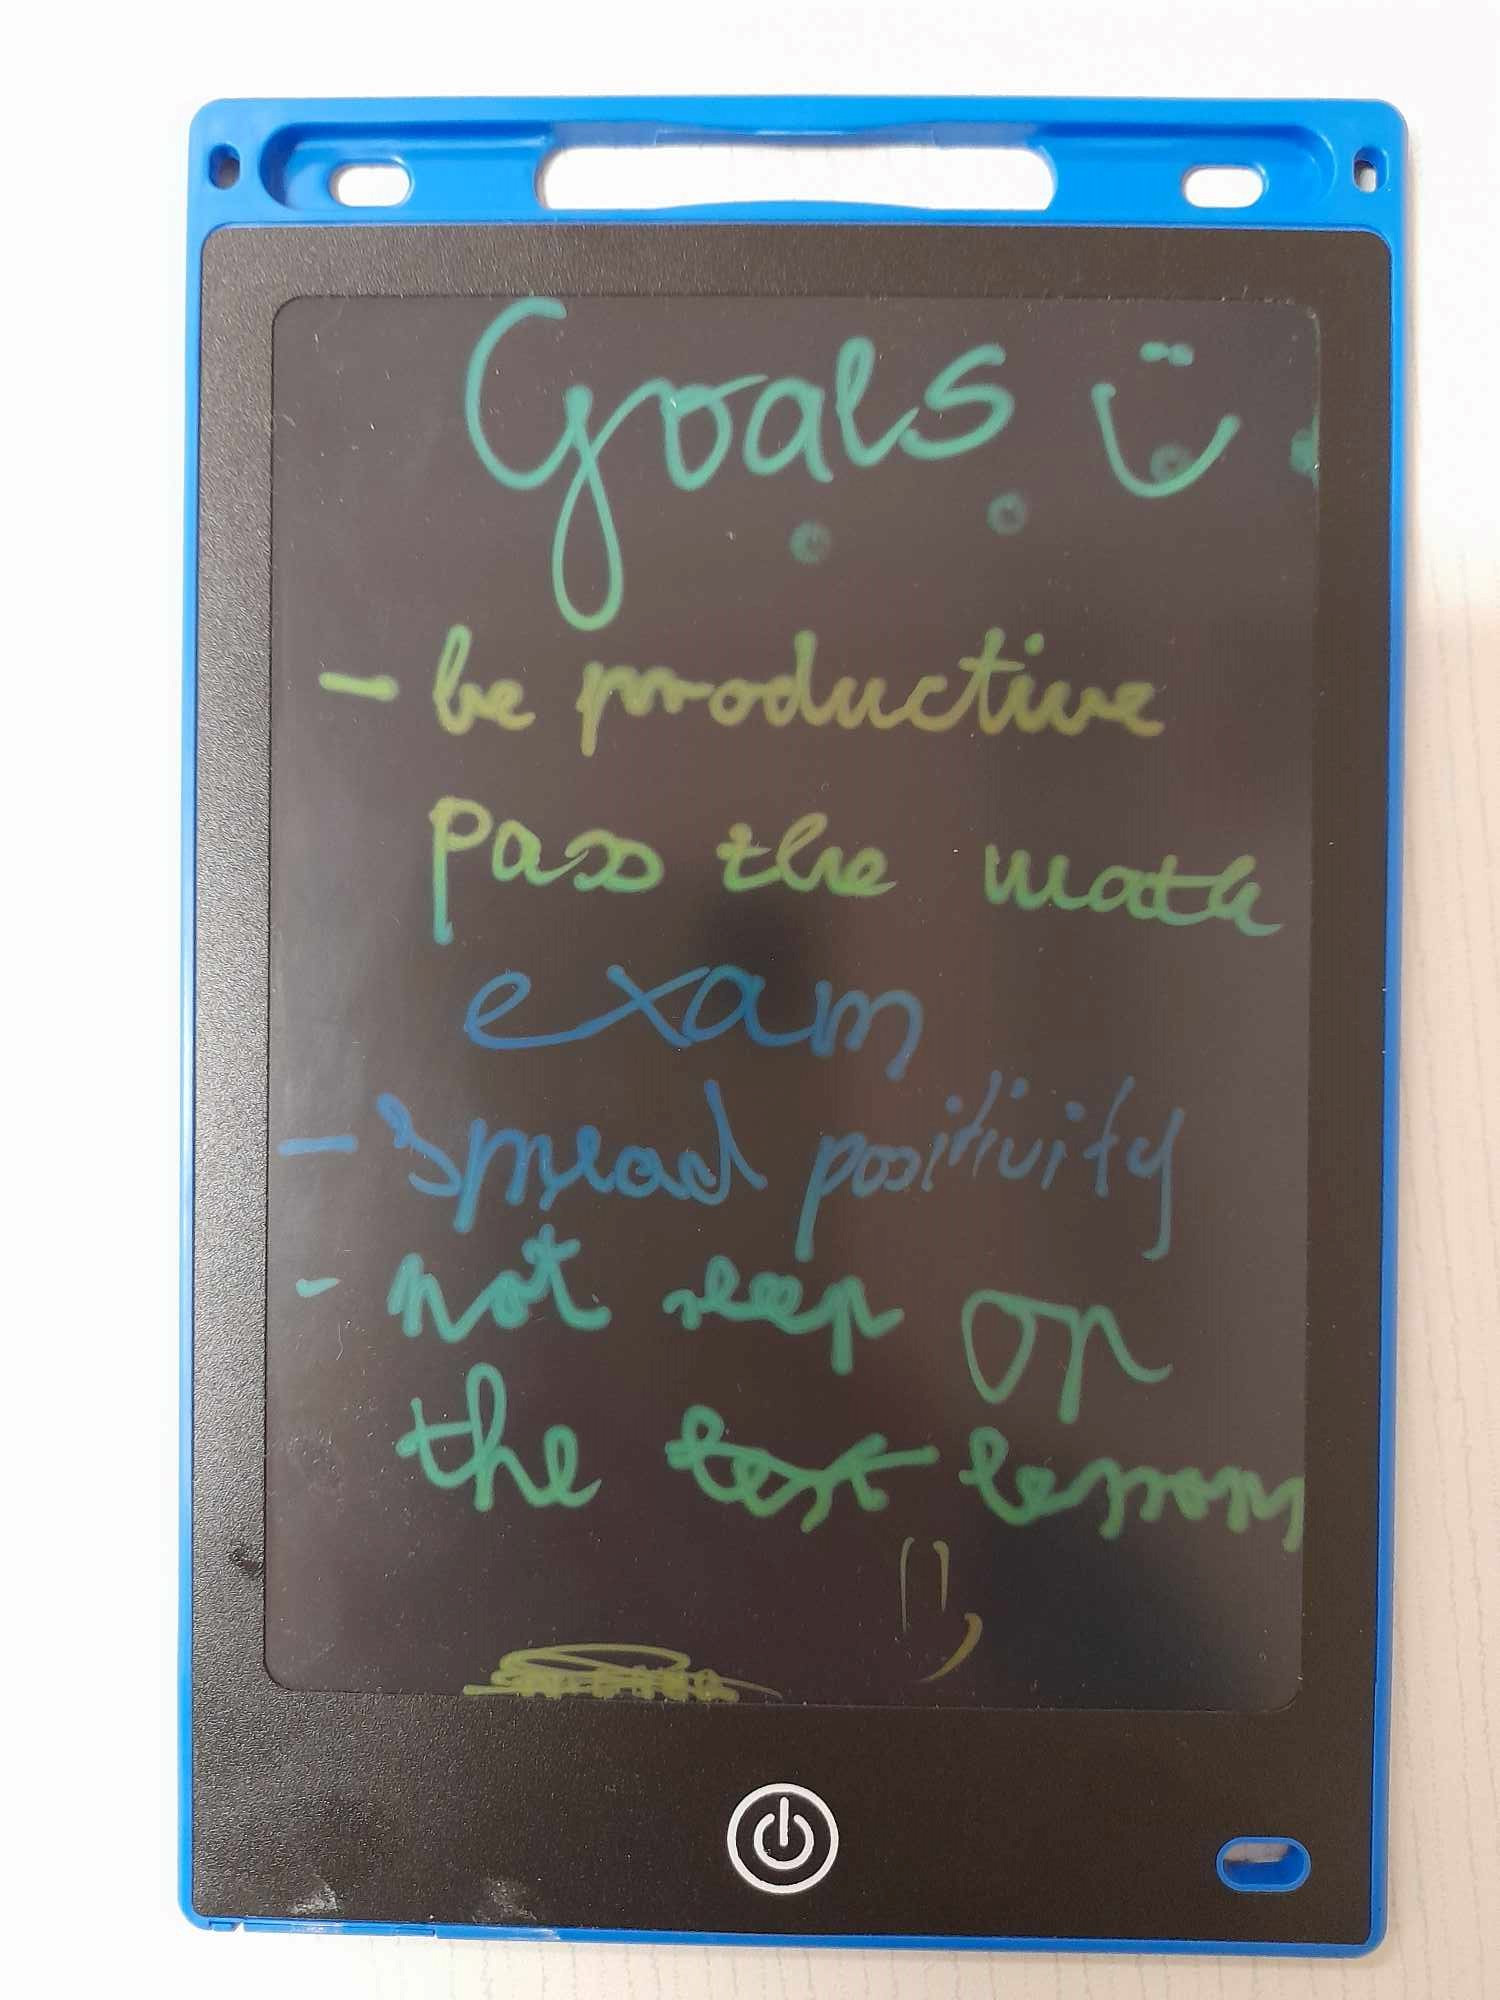 Goals
- be productive
pass the math
exam
- spread positivity
- not sleep on
the test lessons